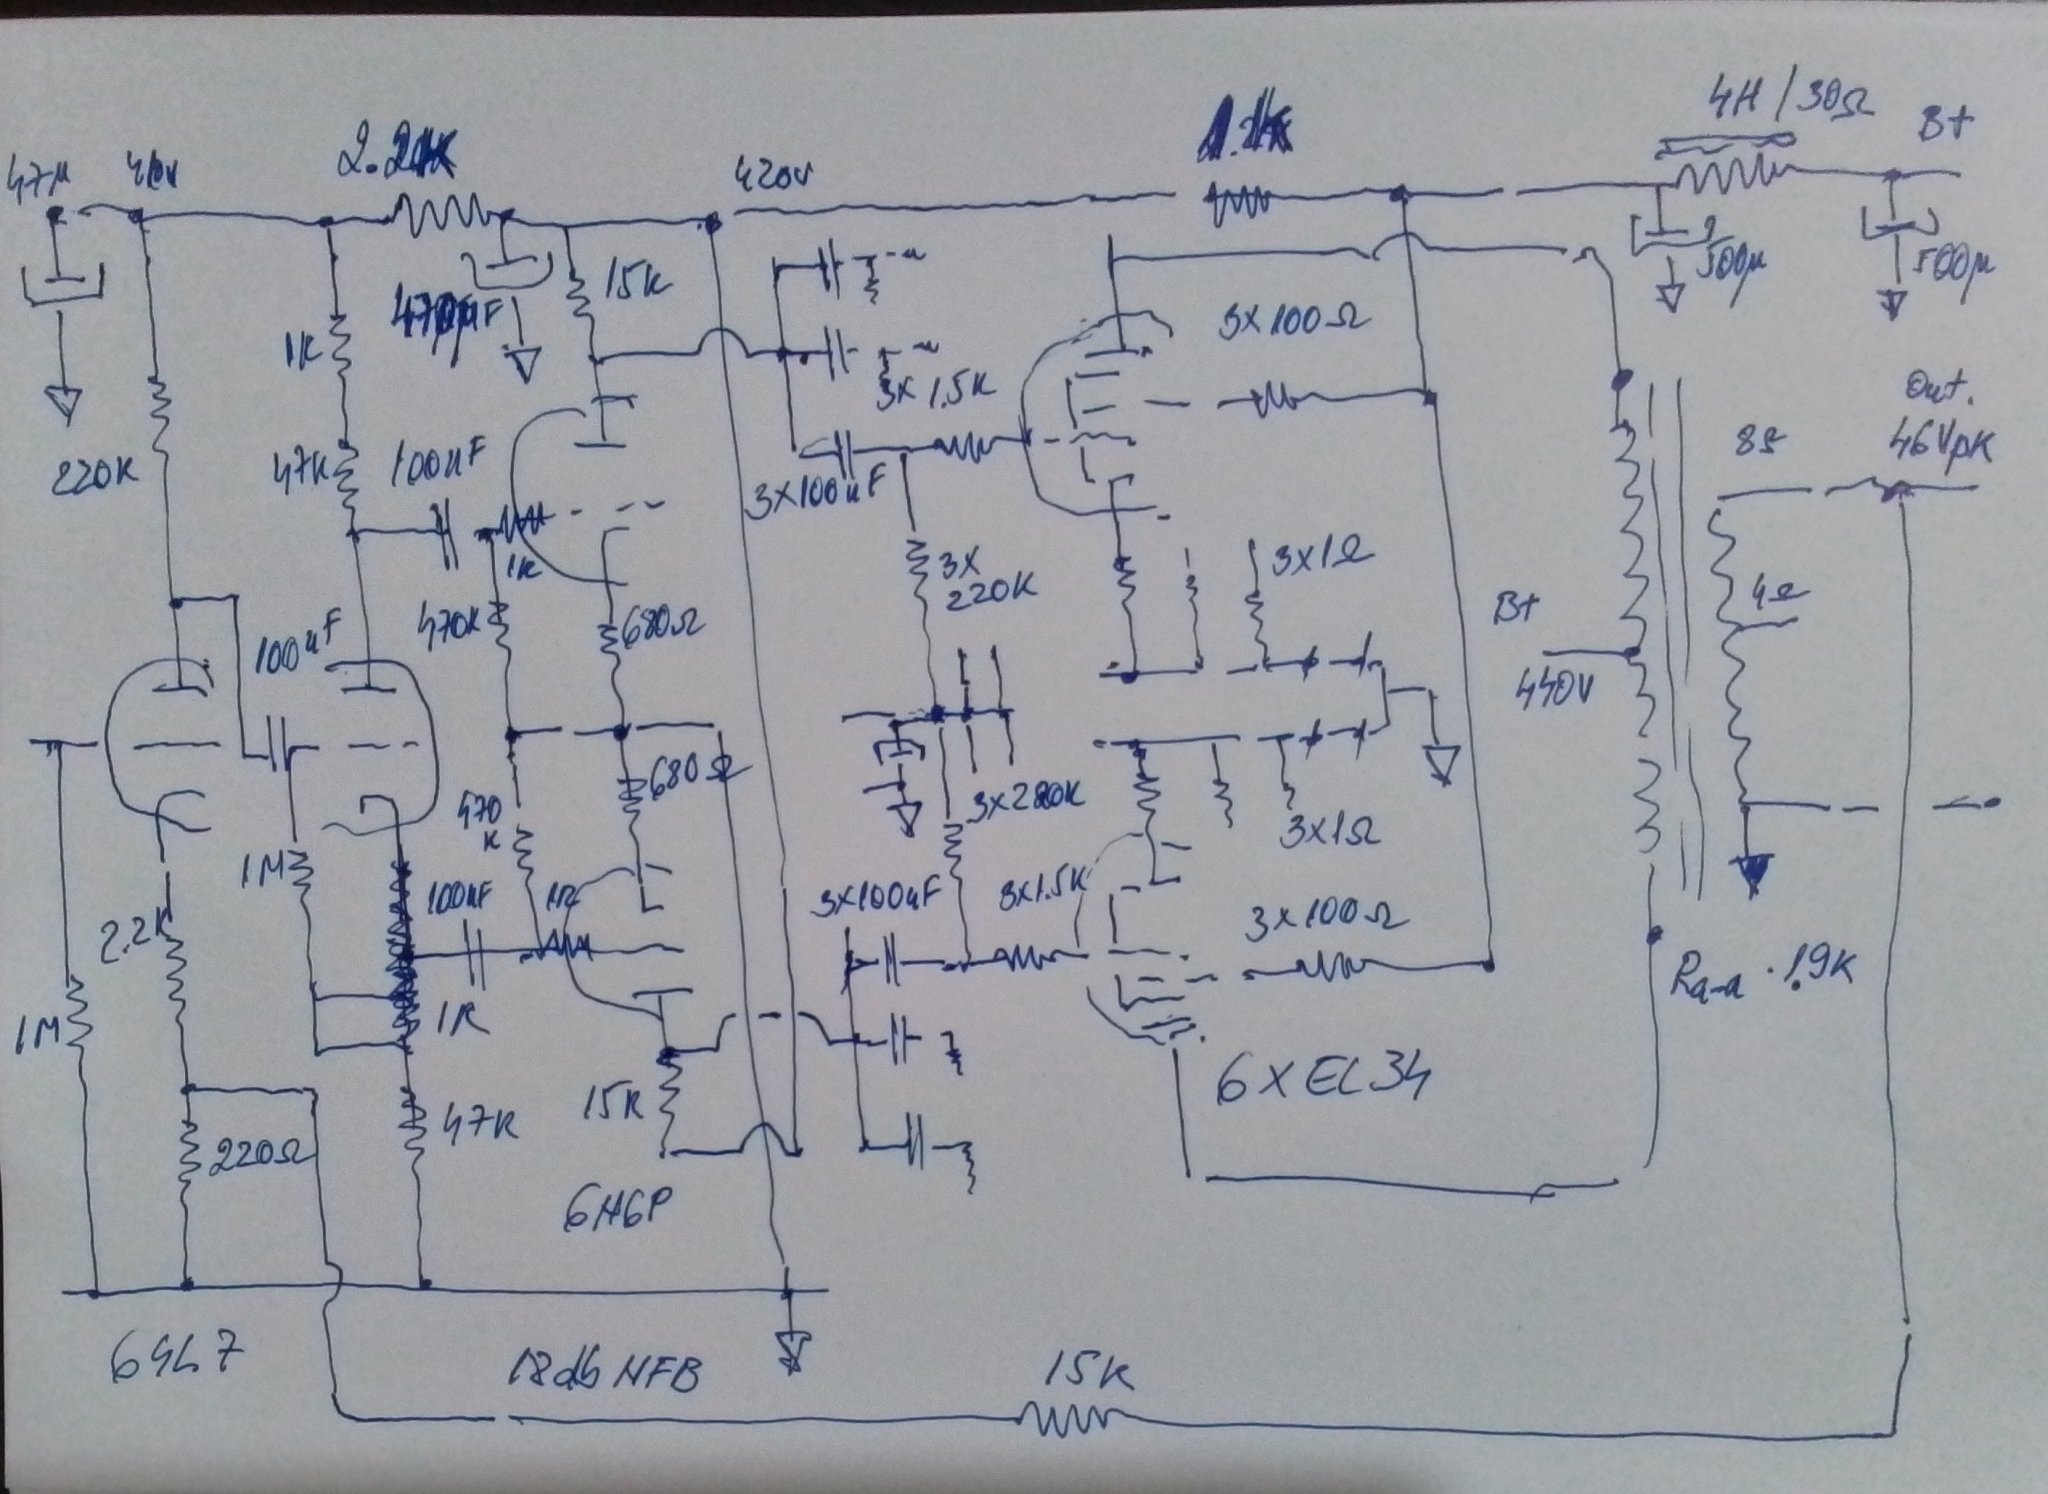 4H/30Ω
B+
47µ
410V
2.2K
420V
500µ
500µ
15K
1K
3X100Ω
3X1.5K
Out.
46Vpk
8Ω
220K
47K
100nF
3X100nF
1K
3X
220K
3X1Ω
4Ω
B+
440V
100nF
470K
680Ω
680Ω
470
K
3X220K
3X1Ω
1M
2.2K
100nF
1K
3X100nF
3X1.5K
3X100Ω
Ra-a 1.9K
1M
1K
47K
15K
6XEL34
220Ω
6H6P
6SL7
18db NFB
15K